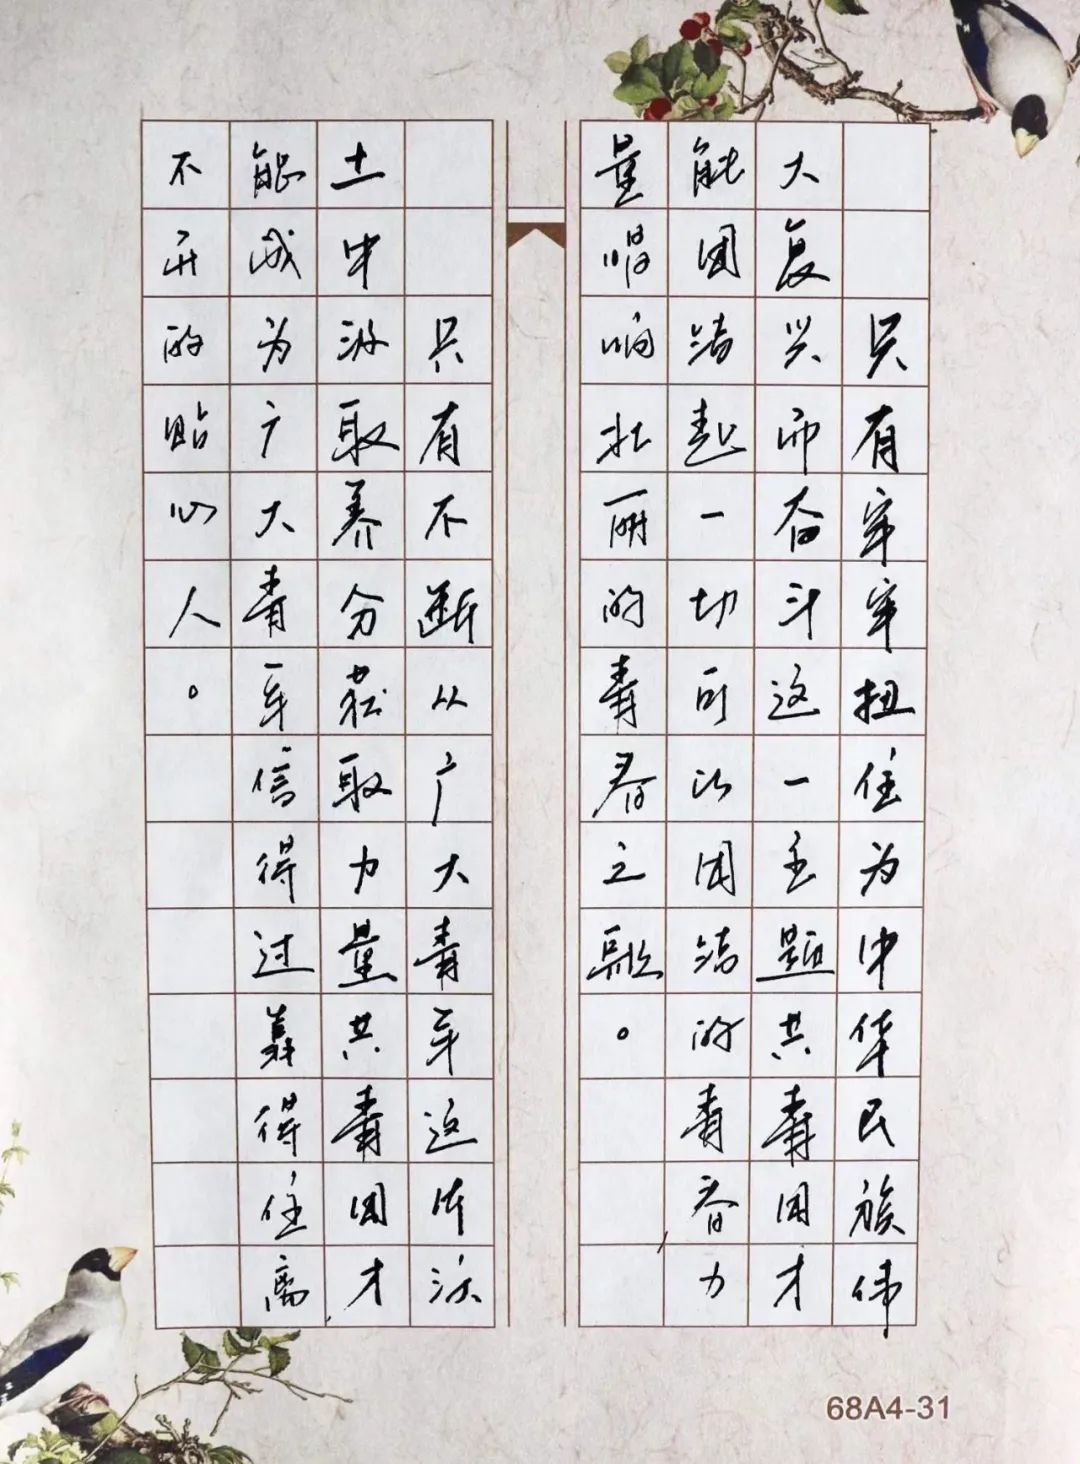 只有牢牢扭住为中华民族伟
大复兴而奋斗这一主题共青团才
能团结起一切可以团结的青春力
量唱响壮丽的青春之歌。
只有不断从广大青年这片沃
土中汲取养分获取力量共青团才
能成为广大青年信得过靠得住离
不开的贴心人。
68A4-31